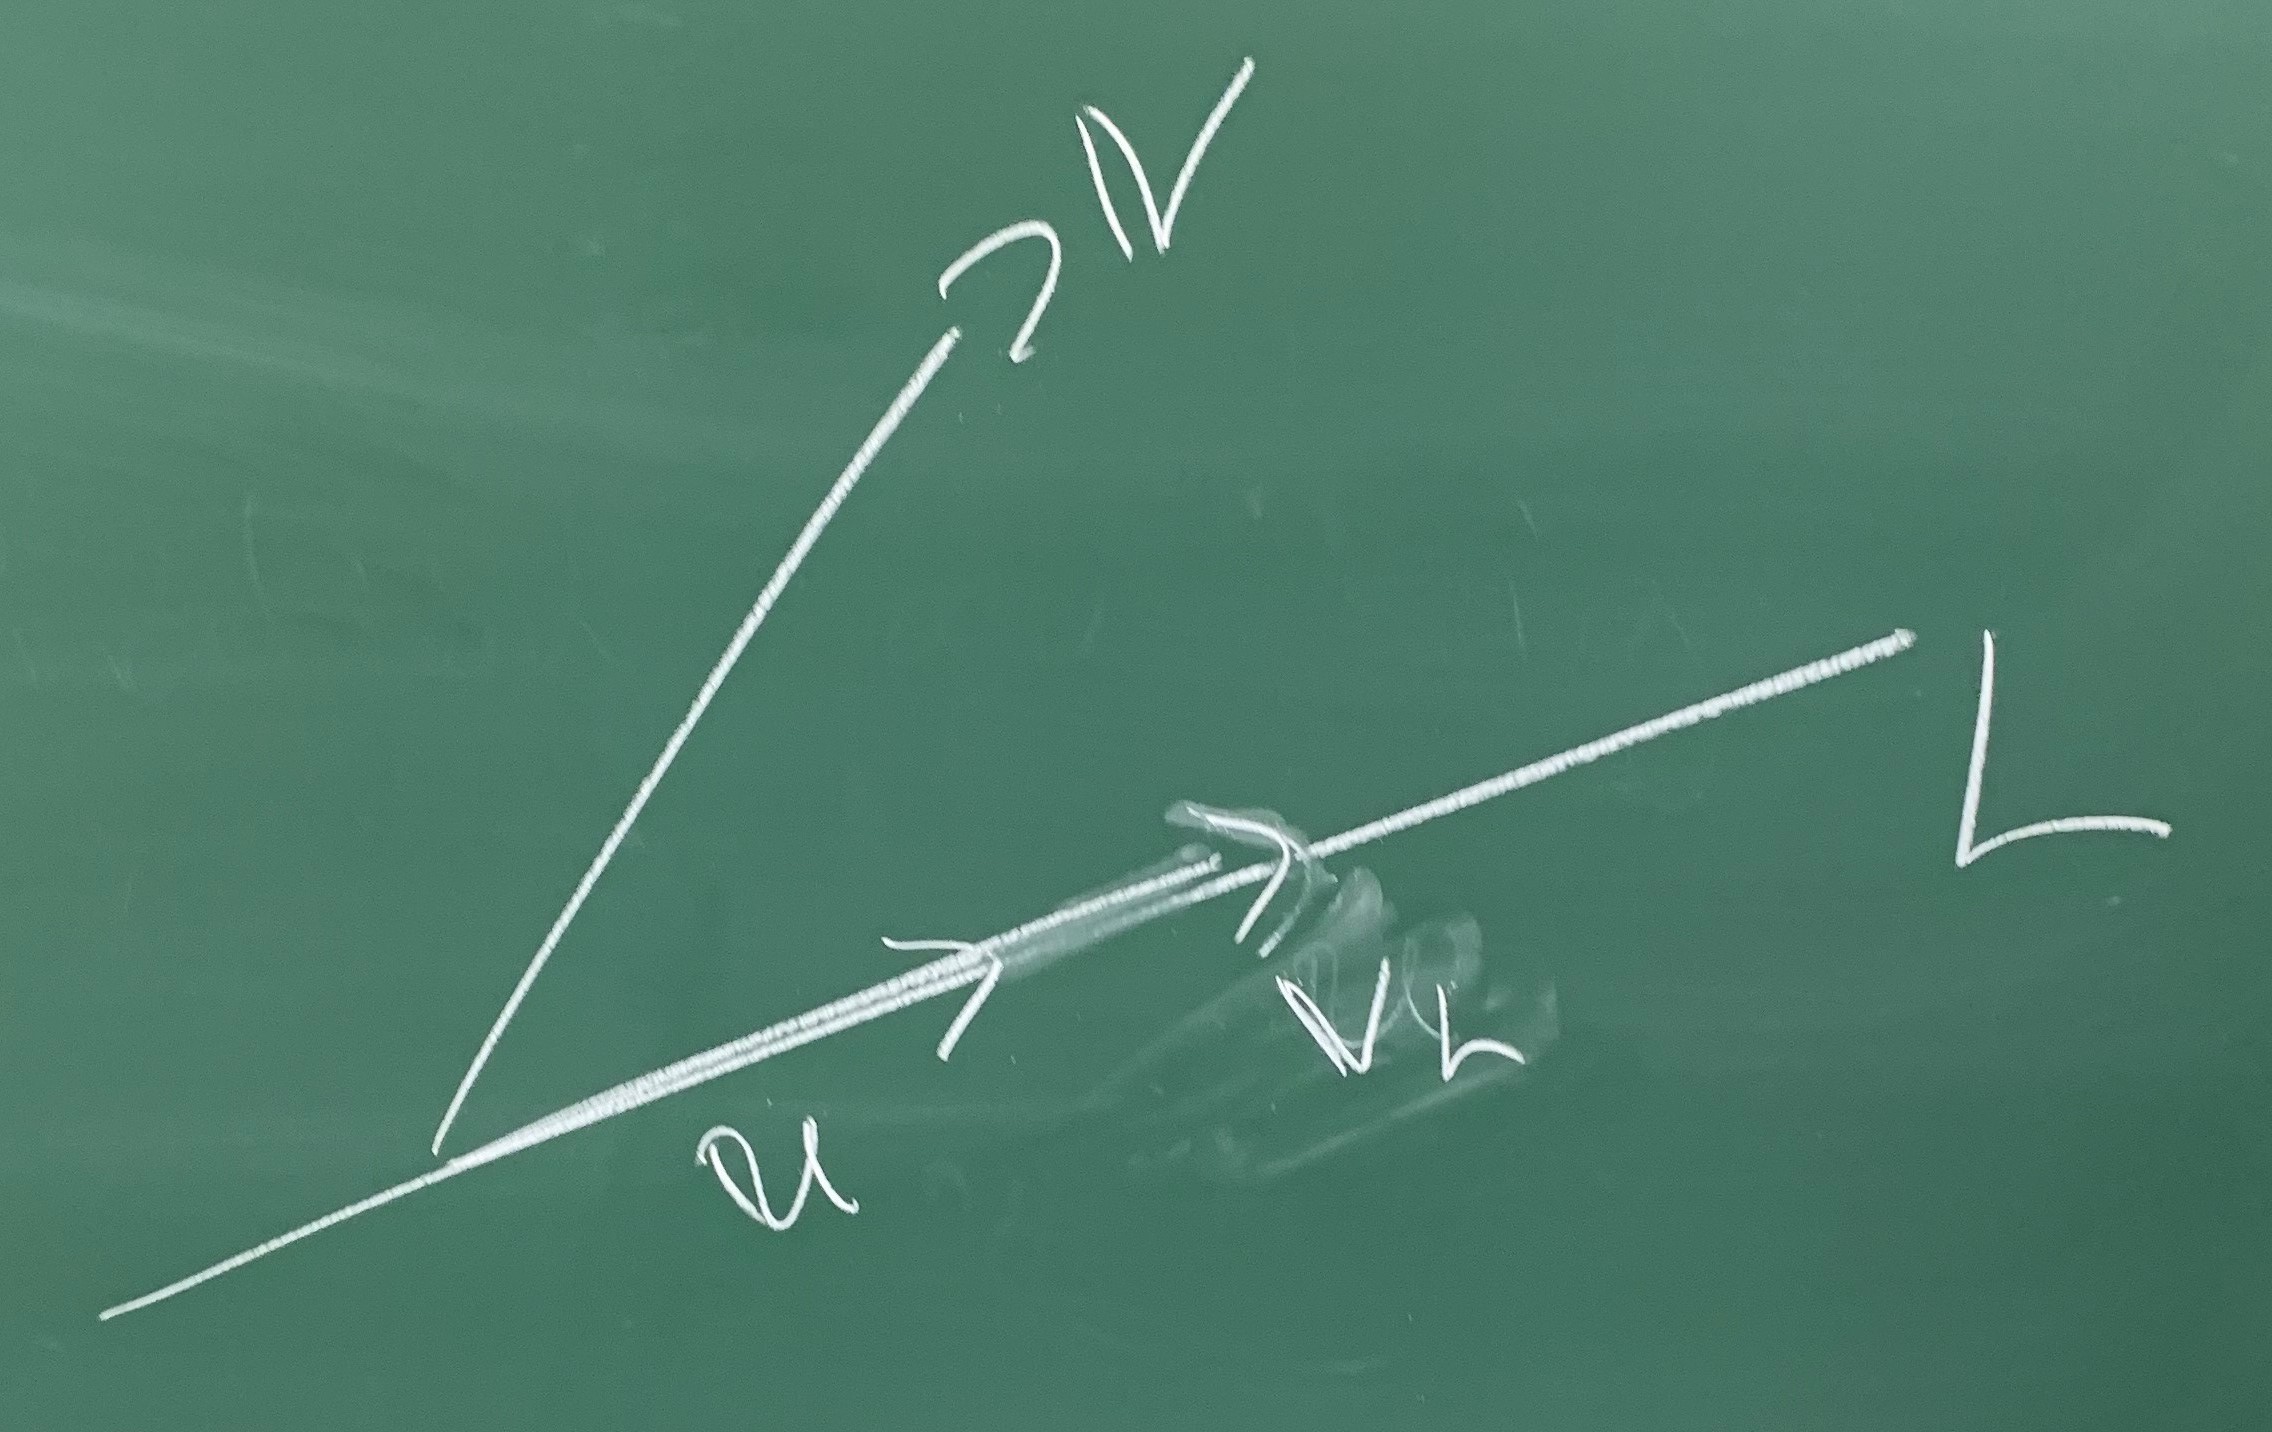 v
L
v_L
u